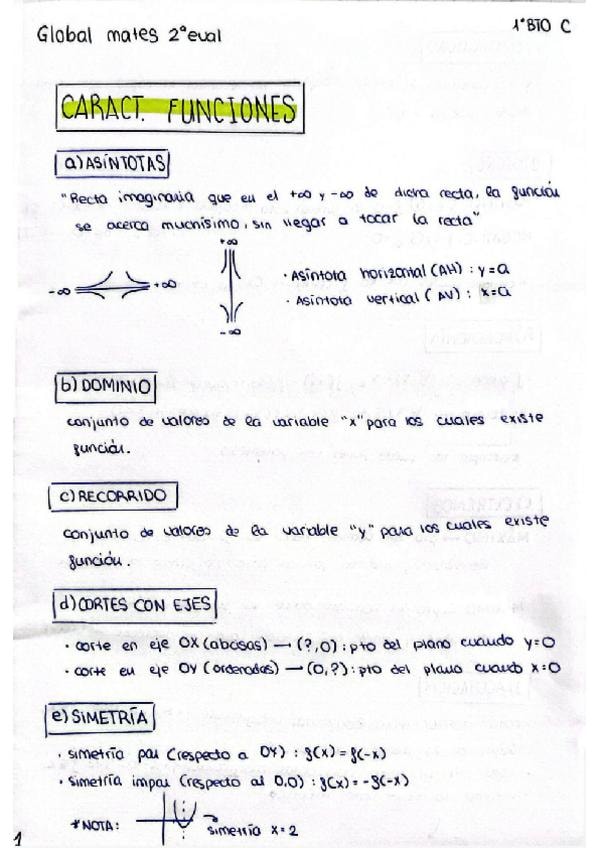 Global mates 2ª eval
1ºBTO C
CARACT. FUNCIONES
a) ASÍNTOTAS
"Recta imaginaria que en el +∞ y -∞ de dicha recta, la función
se acerca muchísimo, sin llegar a tocar la recta"
+∞
-∞ +∞
· Asíntota horizontal (AH) : y=a
· Asíntota vertical (AV) : x=a
-∞
b) DOMINIO
conjunto de valores de la variable "x" para los cuales existe
función.
c) RECORRIDO
conjunto de valores de la variable "y" para los cuales existe
función.
d) CORTES CON EJES
· corte en eje OX (abcisas) → (?,0) : pto del plano cuando y=0
· corte en eje OY (ordenadas) → (0,?) : pto del plano cuando x=0
e) SIMETRÍA
· simetría par (respecto a OY) : f(x) = f(-x)
· simetría impar (respecto al 0,0) : f(x) = -f(-x)
*NOTA:
simetría x=2
1